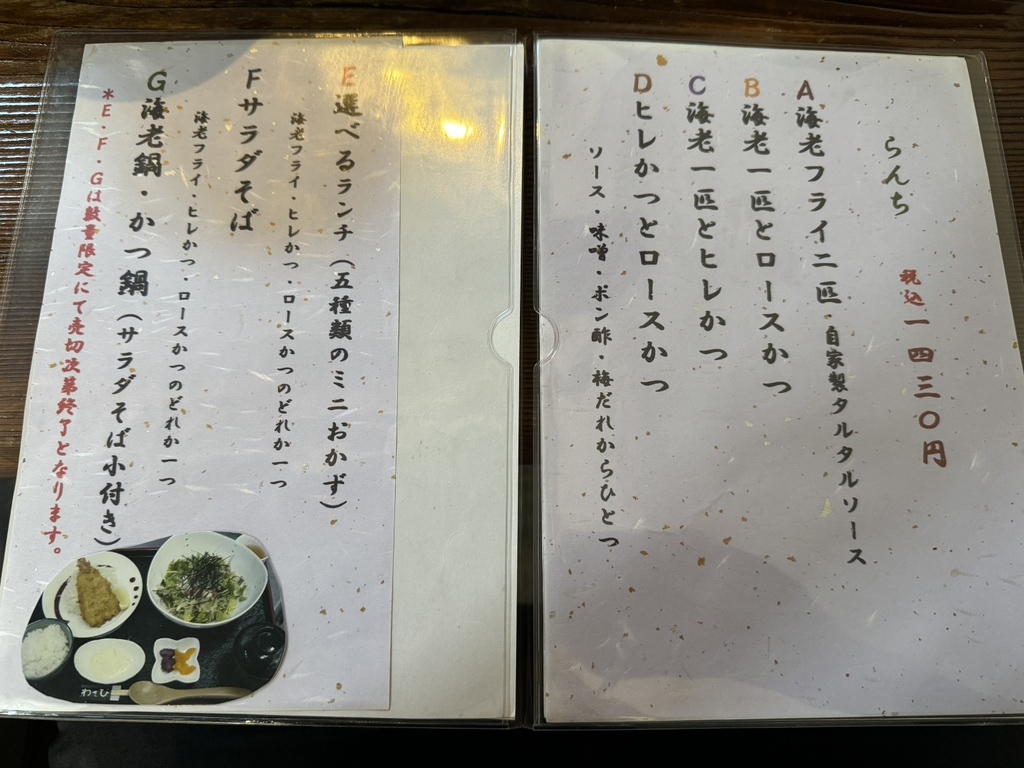 らんち
税込一四三〇円
A海老フライ二匹・自家製タルタルソース
B海老一匹とロースかつ
C海老一匹とヒレかつ
Dヒレかつとロースかつ
ソース・味噌・ポン酢・梅だれからひとつ
E選べるランチ（五種類のミニおかず）
海老フライ・ヒレかつ・ロースかつのどれか一つ
Fサラダそば
海老フライ・ヒレかつ・ロースかつのどれか一つ
G海老鍋・かつ鍋（サラダそば小付き）
＊E・F・Gは数量限定にて売切次第終了となります。
わさび